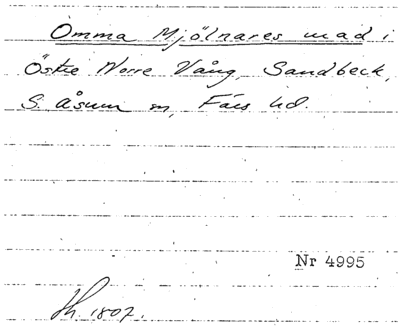 Omma Mjölnares mad i
Östre Norre Vång, Sandbeck,
S. Åsum sn, Färs hd.
Nr 4995
Sk. 1807.